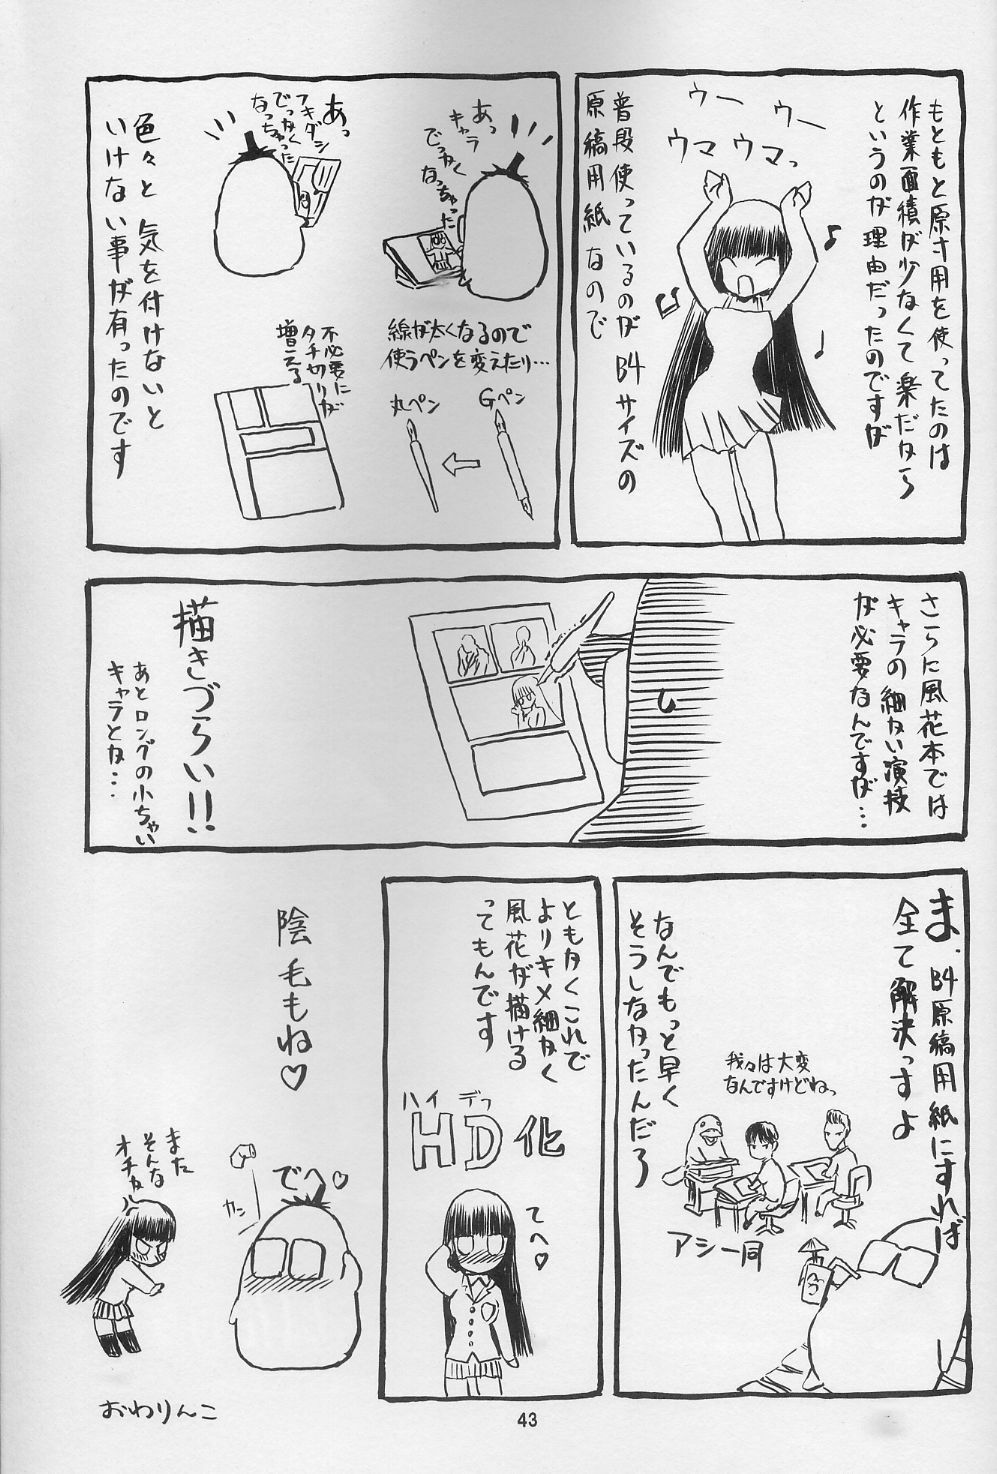 もともと原寸用を使ってたのは
作業面積が少なくて楽だから
というのが理由だったのですが
ウー
ウー
ウマウマっ
普段使っているのがB4サイズの
原稿用紙なので
あっ
キャラ
でっかく
なっちゃった
あっ
フキダシ
でっかく
なっちゃった
線が太くなるので
使うペンを変えたり…
Gペン
丸ペン
不必要に
タチ切りが
増える
色々と気を付けないと
いけない事が有ったのです
さらに風花本では
キャラの細かい演技
が必要なんですが…
描きづらい!!
あとロングの小ちゃい
キャラとか…
ま、B4原稿用紙にすれば
全て解決っすよ
なんでもっと早く
そうしなかったんだろ
我々は大変
なんですけどねっ
アシ一同
ともかくこれで
よりキメ細かく
風花が描ける
ってもんです
ハイ デフ
HD化
てへ♡
陰毛もね♡
でへ♡
カン
また
そんな
オチか
おわりんこ
43